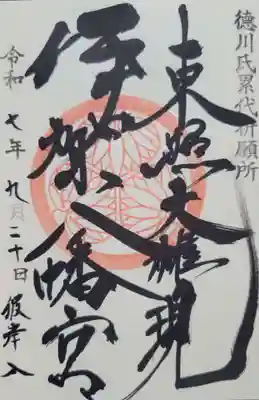 徳川氏累代祈願所
東照大権現
伊賀八幡宮
令和七年九月二十日 彼岸入